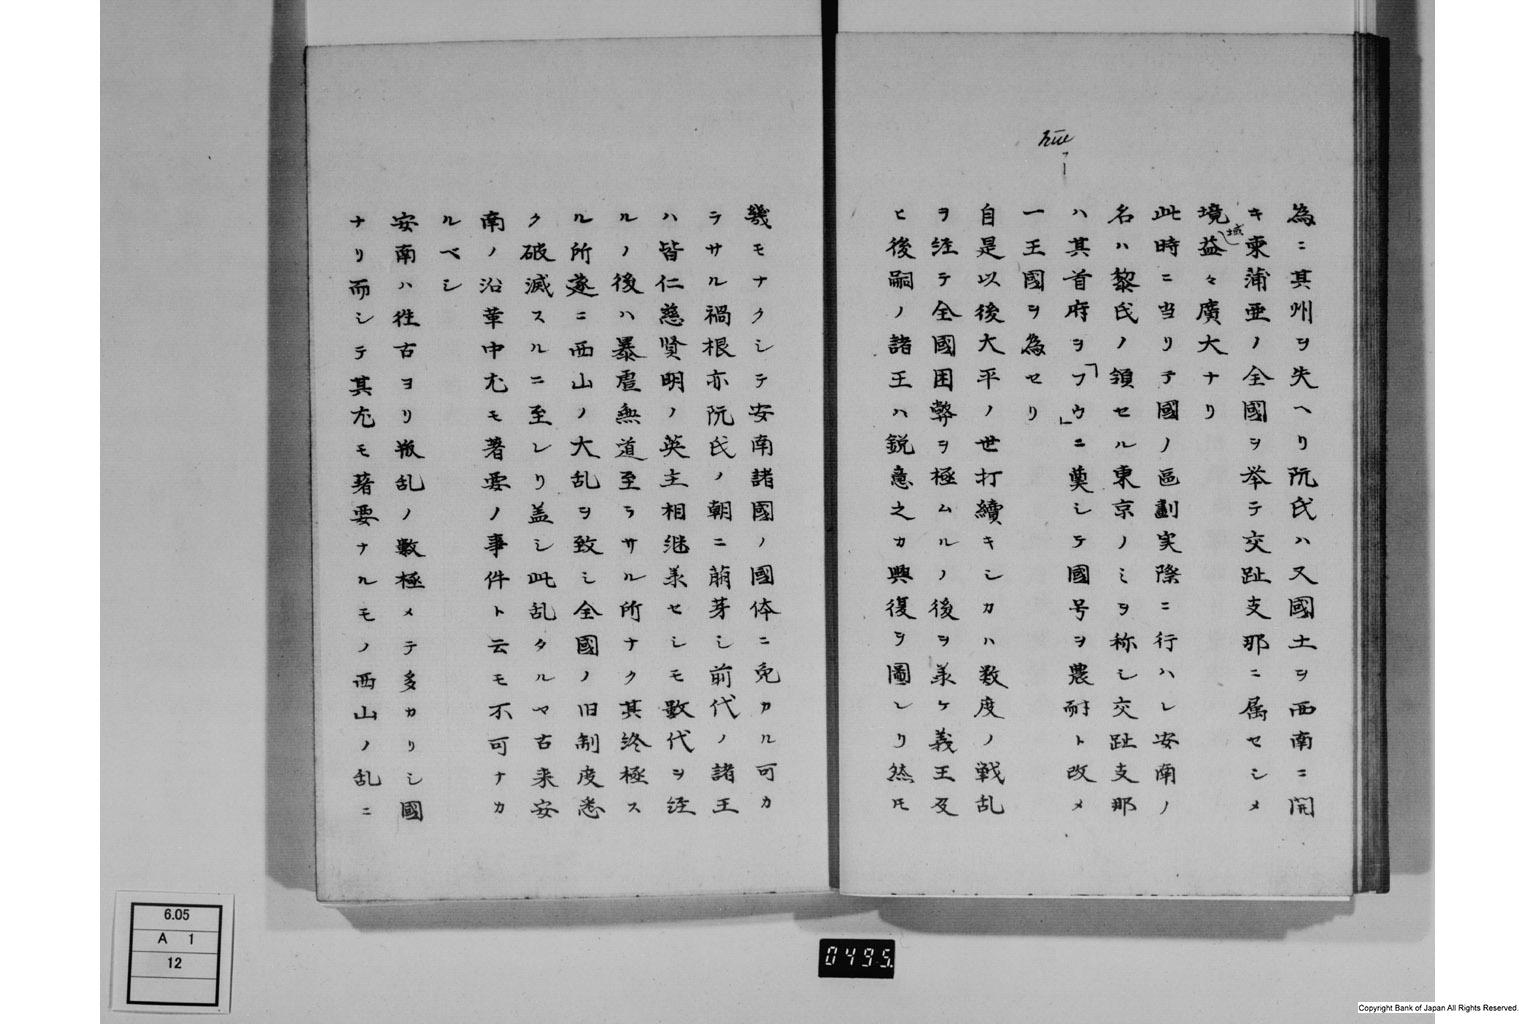 為ニ其州ヲ失ヘリ阮氏ハ又國土ヲ西南ニ開
キ柬蒲亜ノ全國ヲ挙テ交趾支那ニ属セシメ
境域益々廣大ナリ
此時ニ当リテ國ノ區劃実際ニ行ハレ安南ノ
名ハ黎氏ノ領セル東京ノミヲ称シ交趾支那
ハ其首府ヲ「フウ」ニ奠シテ國号ヲ農耐ト改メ
一王國ヲ為セリ
自是以後大平ノ世打續キシカハ数度ノ戦乱
ヲ経テ全國困弊ヲ極ムルノ後ヲ承ケ義王及
ヒ後嗣ノ諸王ハ鋭意之カ興復ヲ圖レリ然ㇳモ
幾モナクシテ安南諸國ノ國体ニ免カル可カ
ラサル禍根亦阮氏ノ朝ニ萠芽シ前代ノ諸王
ハ皆仁慈賢明ノ英主相継承セシモ数代ヲ経
ルノ後ハ暴虐無道至ラサル所ナク其終極ス
ル所遂ニ西山ノ大乱ヲ致シ全國ノ旧制度悉
ク破滅スルニ至レリ盖シ此乱タルヤ古来安
南ノ沿革中尤モ著要ノ事件ト云モ不可ナカ
ルベシ
安南ハ徃古ヨリ叛乱ノ數極メテ多カリシ國
ナリ而シテ其尤モ著要ナルモノ西山ノ乱ニ
6.05
A 1
12
0495
Copyright Bank of Japan All Rights Reserved.